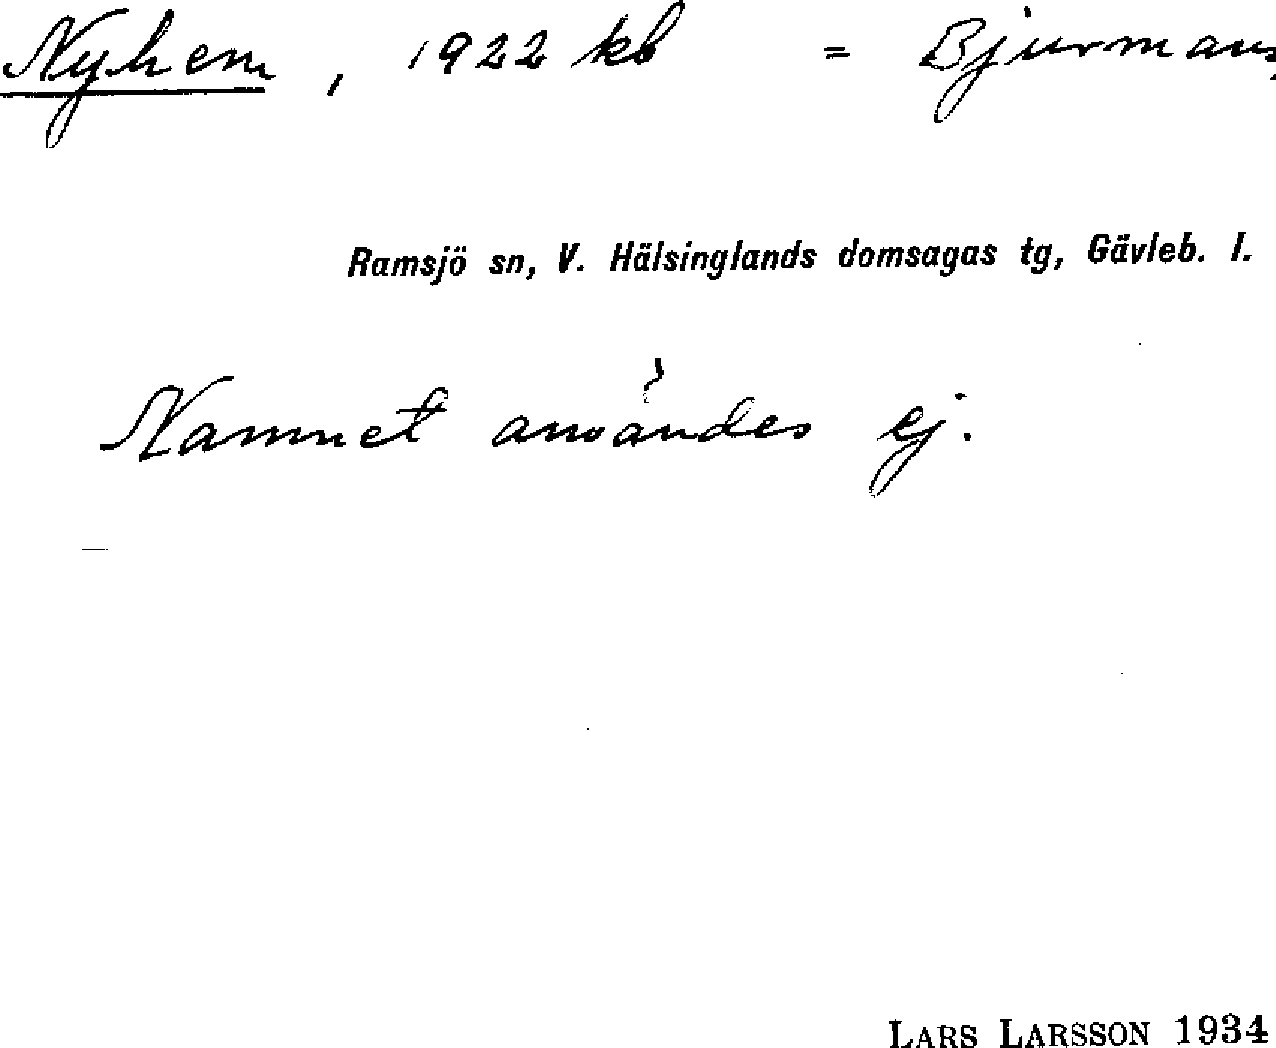 Nyhem, 1922 kb = Bjurmans
Ramsjö sn, V. Hälsinglands domsagas tg, Gävleb. l.
Namnet användes ej.
LARS LARSSON 1934